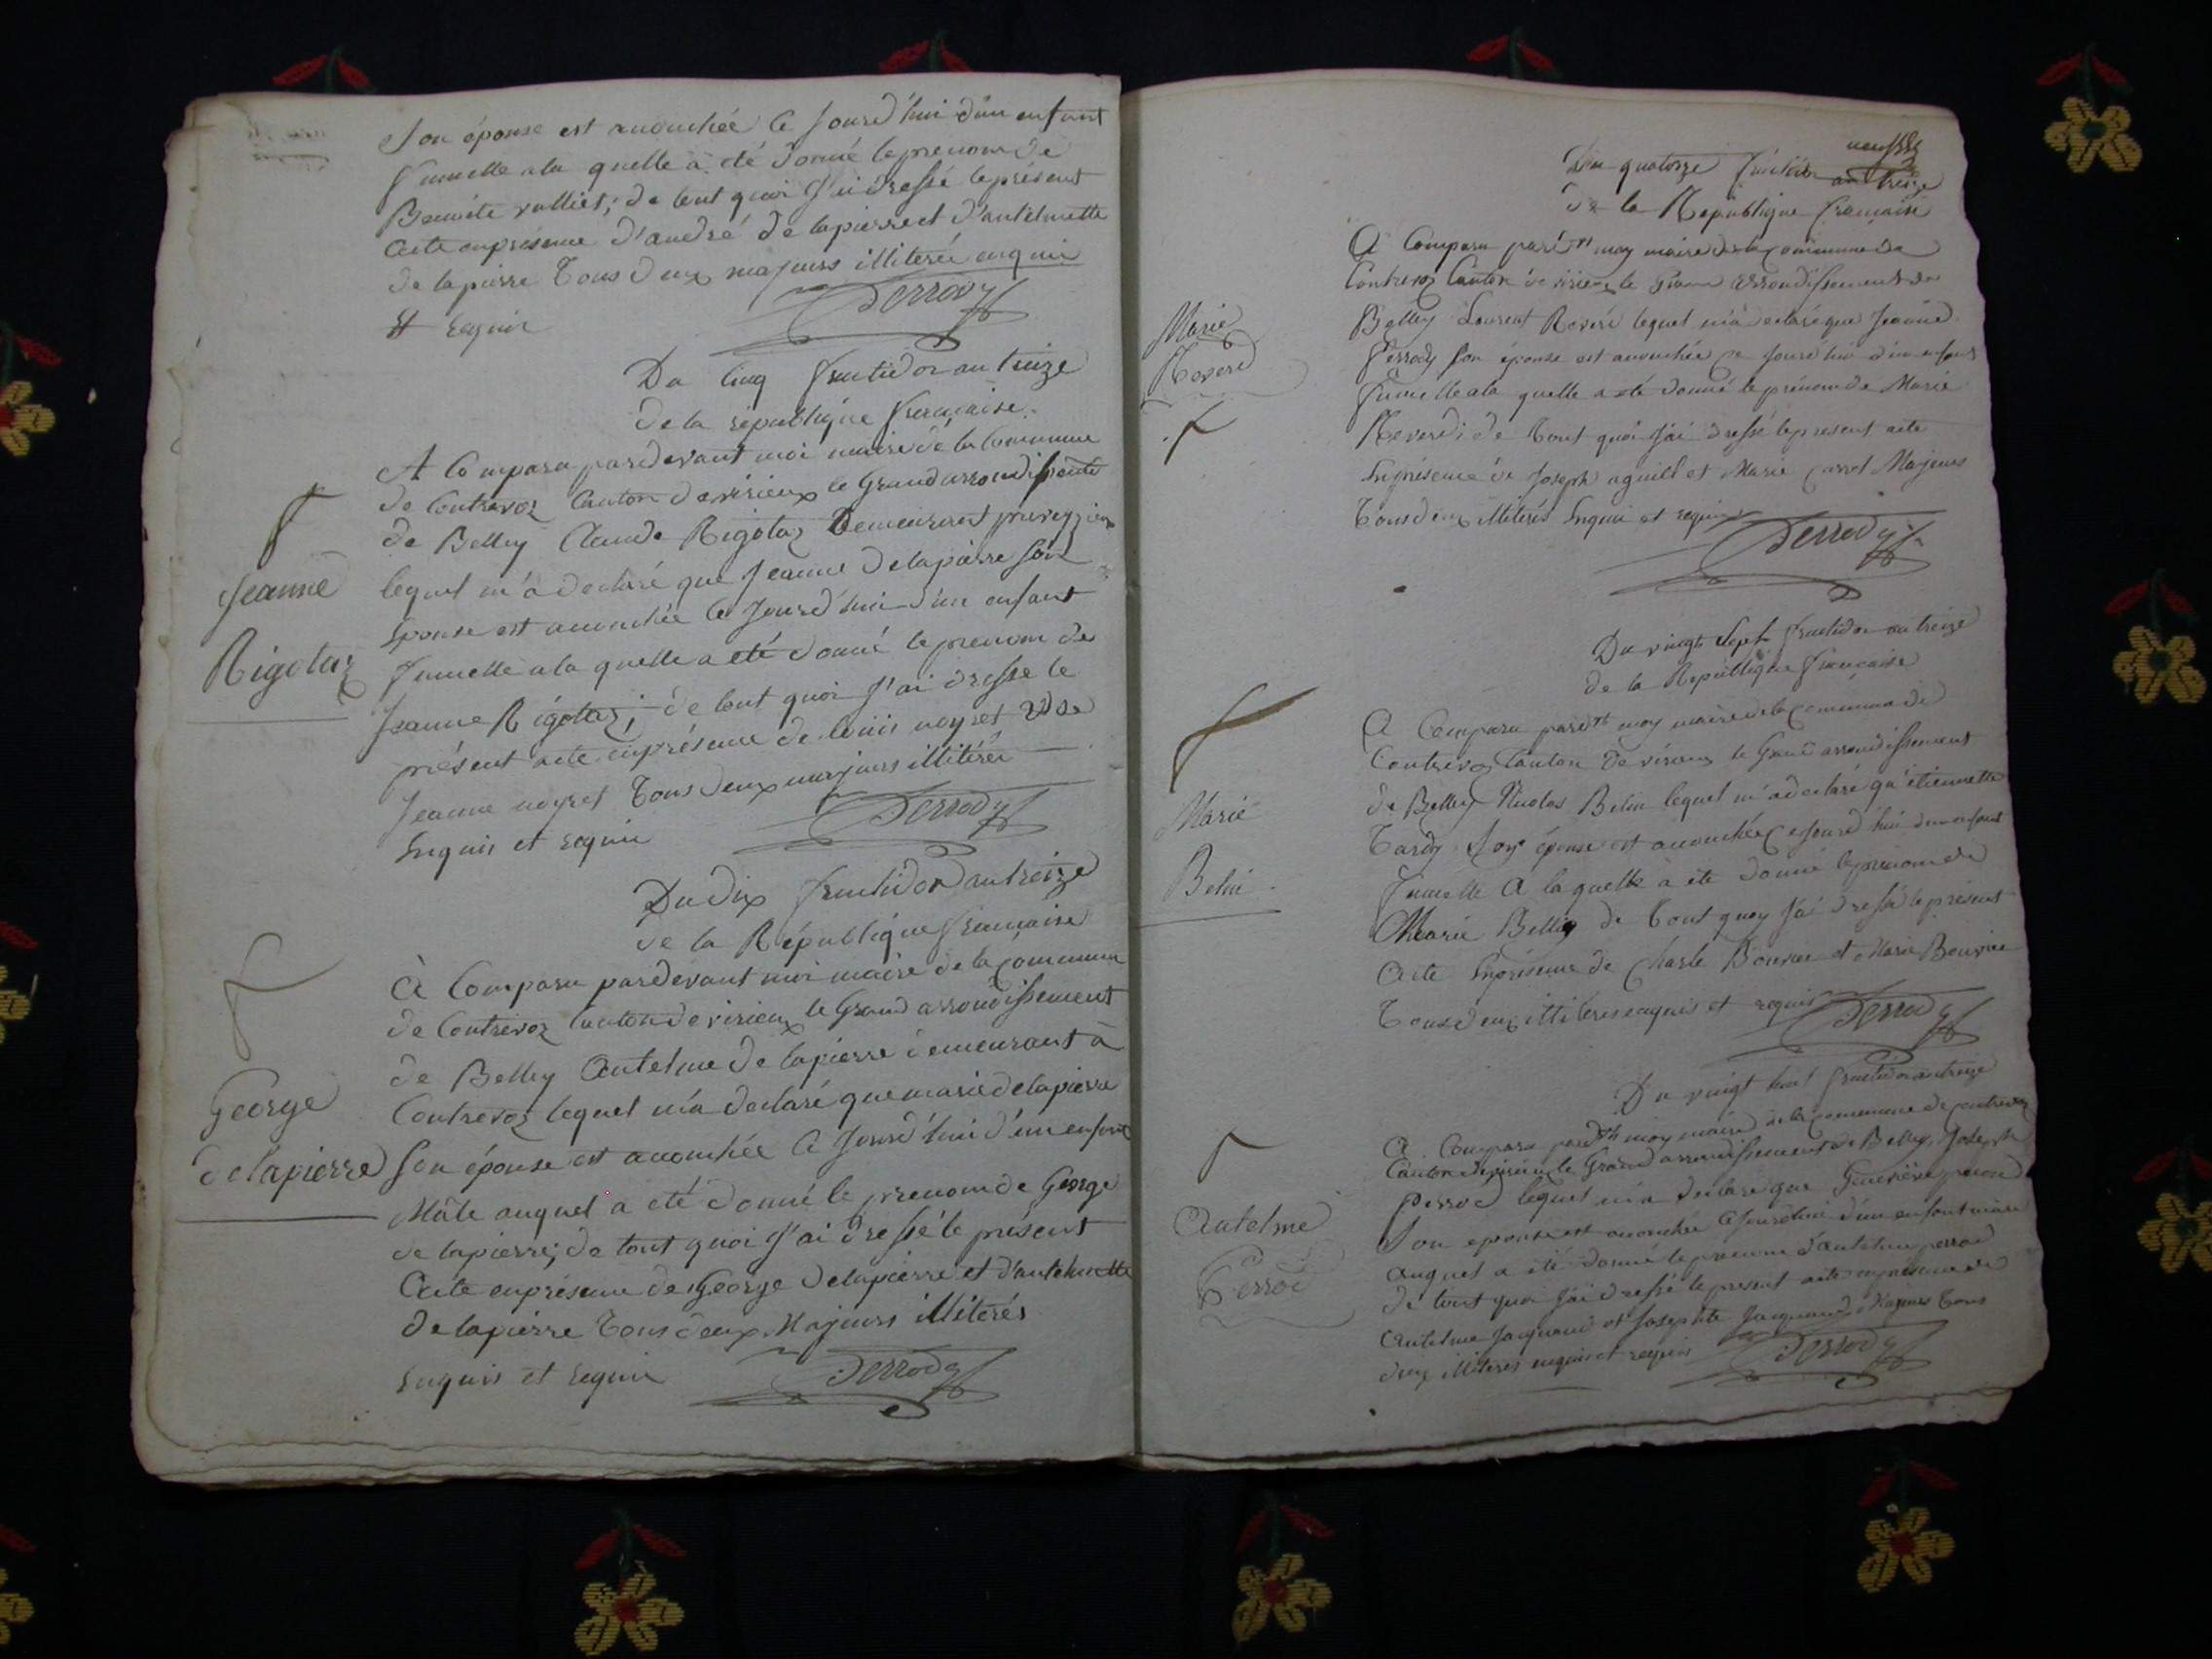 Son épouse est accouchée ce Jourd'hui d'un enfant
fumelle a la quelle à été donné le prenom de
Benoite rulliet; de tout quoi J'ai dressé le présent
acte en présence d'andré de lapierre et d'antelmette
de lapierre tous deux majeurs illiterés enquis
Et requis
Derrody
Du Cinq fructidor an treize
de la république française.
A Comparu pardevant moi maire de la Commune
de Contrevoz Canton de virieux le Grand arrondissement
de Belley Claude Rigotaz demeurant
lequel m'a declaré que Jeanne Delapierre son
Epouse est accouchée ce Jourd'hui d'un enfant
fumelle a la quelle a été donné le prenom de
Jeanne Rigotaz; de tout quoi J'ai dressé le
présent acte en présence de louis noyret et de
Jeanne noyret tous deux majeurs illitérés
Enquis et requis
Derrody
Jeanne
Rigotaz
Du dix fructidor an treize
de la République française
À Comparu pardevant moi maire de la Commune
de Contrevoz Canton de virieux le Grand arrondissement
de Belley Antelme De lapierre demeurant à
Contrevoz lequel m'a declaré que marie delapierre
Son épouse est accouchée ce Jourd'hui d'un enfant
Mâle auquel a été donné le prenom de George
de lapierre; de tout quoi J'ai dressé le présent
Acte en présence de George Delapierre et d'antelmette
De lapierre tous deux Majeurs illiterés
Enquis et requis
Derrody
George
delapierre
Du quatorze fructidor an treize
de la République française
A Comparu pard.nt moy maire de la commune de
Contrevoz Canton de virieux le Grand arrondissement de
Belley Laurent Reverd lequel m'a declaré que Jeanne
Perrody son épouse est accouchée ce Jourd'hui d'un enfant
fumelle a la quelle a été donné le prénom de Marie
Reverd; de tout quoi J'ai dressé le present acte
En présence de Joseph et Marie Majeurs
tous deux illiterés Enquis et requis
Derrody
Marie
Reverd
Du vingt Sept fructidor an treize
de la République française
A Comparu pard.nt moy maire de la Commune de
Contrevoz Canton de virieux le Grand arrondissement
de Belley Nicolas Belin lequel m'a declaré qu'étiennette
Tardy Son épouse est accouchée ce Jourd'hui d'un enfant
fumelle A la quelle à été donné le prenom de
Marie Bellin de tout quoy J'ai dressé le présent
Acte En présence de Charle Bouvier et Marie Bouvier
tous deux illiteres enquis et requis
Derrody
Marie
Belin
Du vingt huit fructidor an treize
A Comparu pard.nt moy maire de la Commune de Contrevoz
Canton de virieux le Grand arrondissement de Belley, Joseph
Perrod lequel m'a declaré que Genevieve
Son epouse est accouchée ce Jourd'hui d'un enfant male
auquel a été donné le prenom d'antelme perrod
de tout quoi J'ai dressé le present acte en présence de
Antelme Jacquand et Josephte Jacquand Majeurs tous
deux illiteres enquis et requis
Derrody
Antelme
Perrod